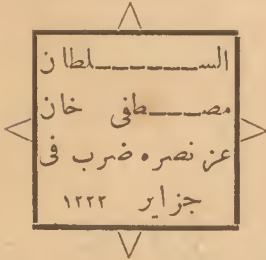 السلطان
مصطفى خان
عز نصره ضرب فى
جزاير ١٢٢٢